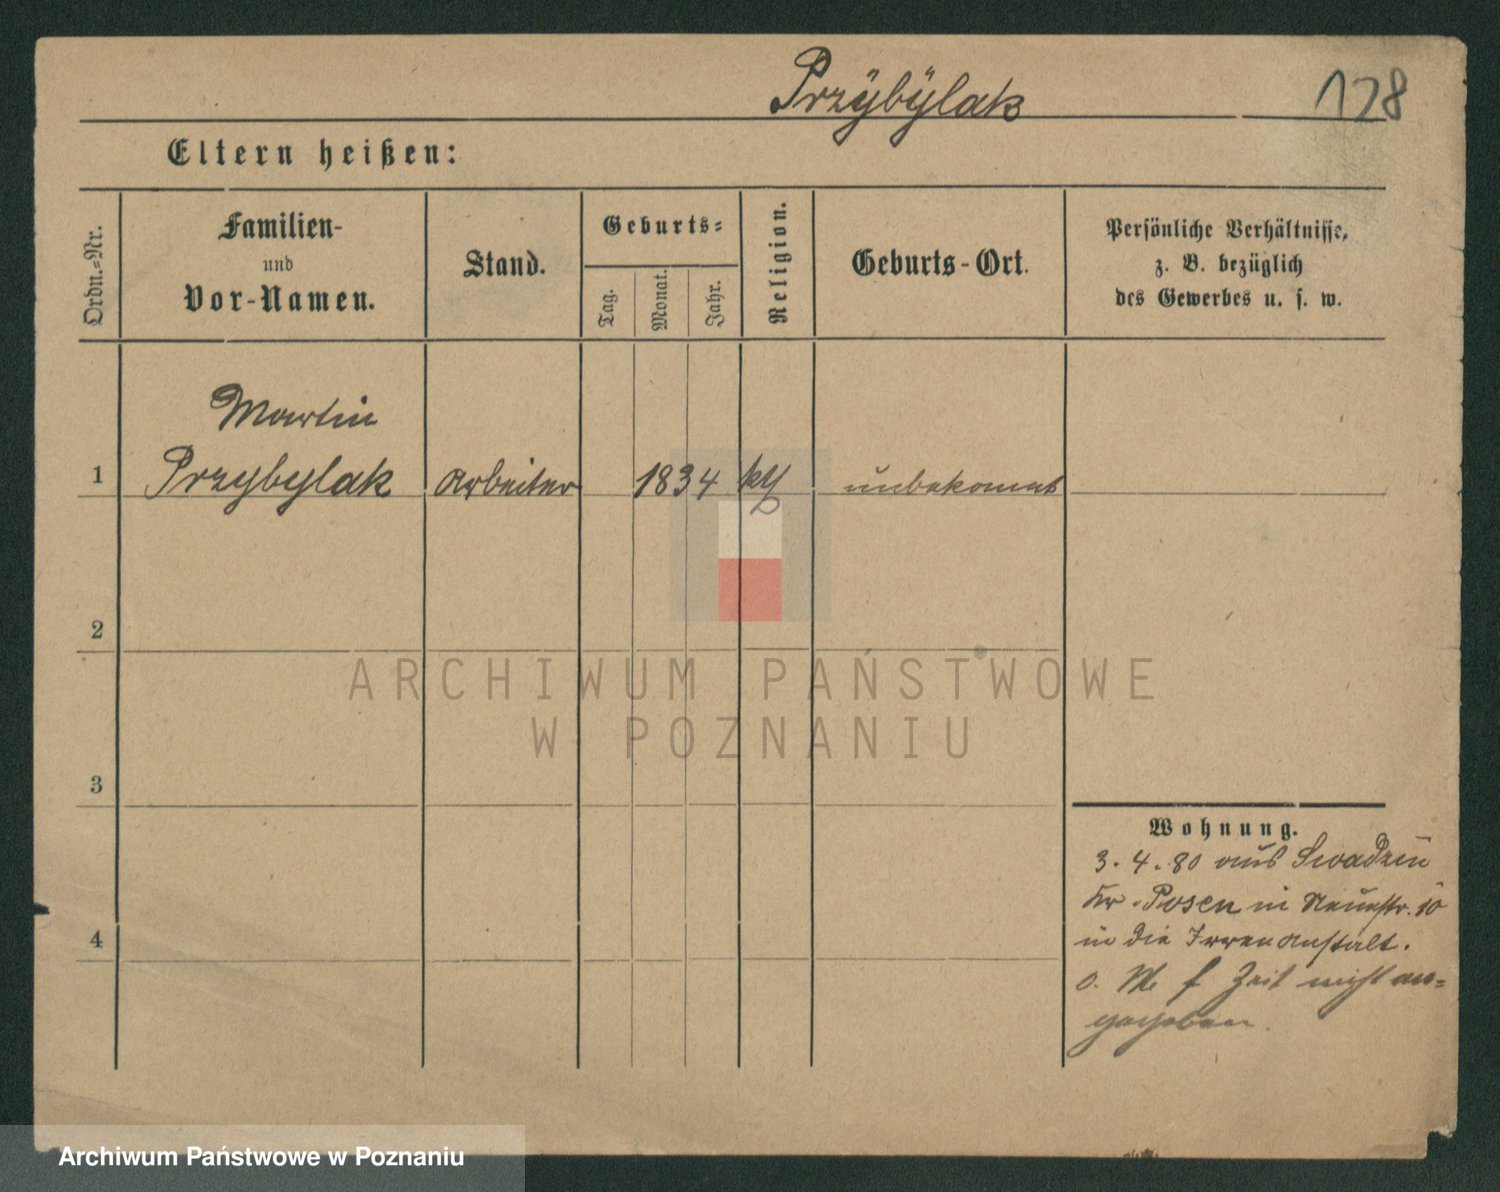 Przÿbÿlak
128
Eltern heißen:
Ordn.-Nr.
Familien-
und
Vor-Namen.
Stand.
Geburts-
Tag.
Monat.
Jahr.
Religion.
Geburts-Ort.
Persönliche Verhältnisse,
z. B. bezüglich
des Gewerbes u. s. w.
Martin
1 Przybylak Arbeiter 1834 unbekannt
2
ARCHIWUM PAŃSTWOWE
W POZNANIU
3
Wohnung.
3. 4. 80 aus Swadzim
Kr. Posen in Neuestr. 10
4
in die Irrenanstalt.
o. M. f Zeit nicht an=
gegeben.
Archiwum Państwowe w Poznaniu